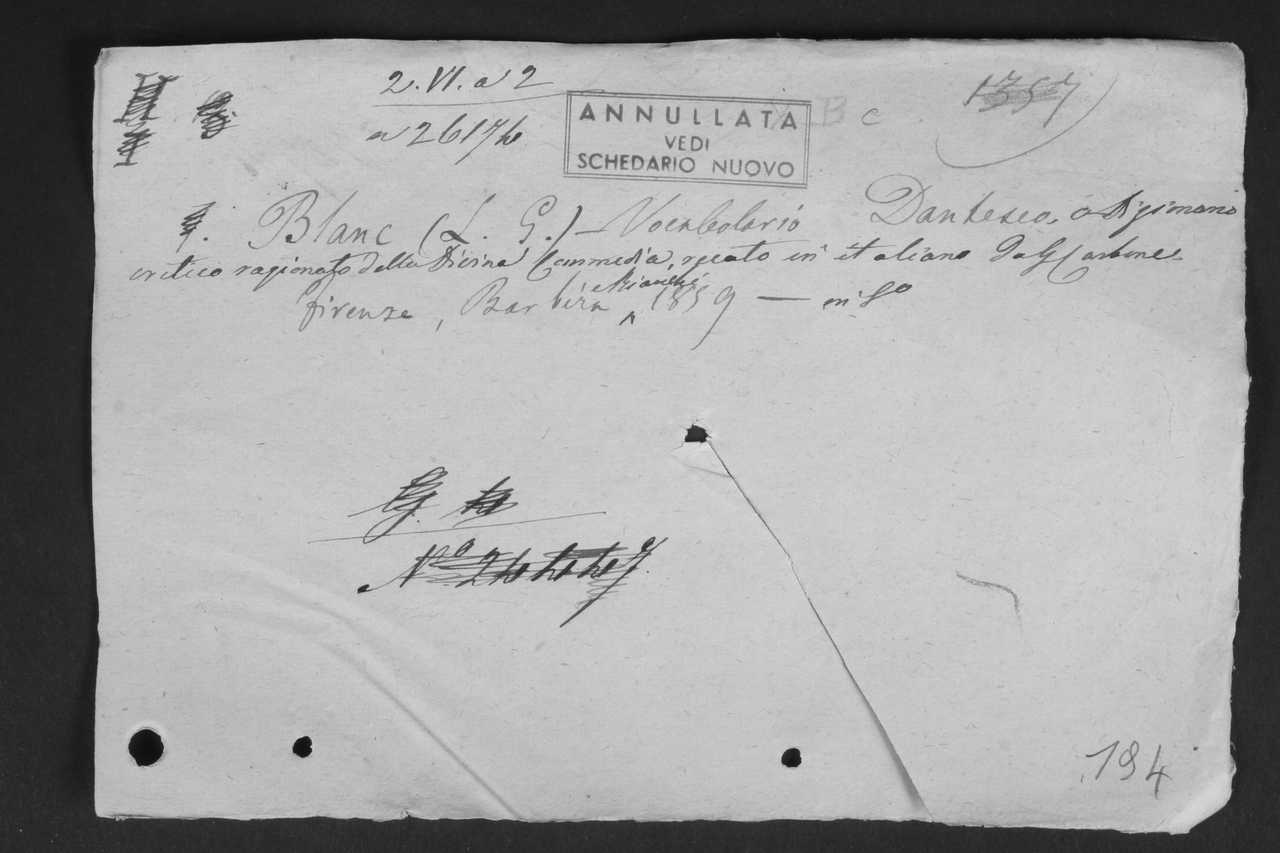 2. VI. a 2
a 26174
ANNULLATA
VEDI
SCHEDARIO NUOVO
B c
1357
Blanc (L. G.) – Vocabolario Dantesco, o
critico ragionato della Divina Commedia, recato in italiano da G Carbone
Firenze, Barbèra Bianchi 1859 — in 8º
Nº 24447
194